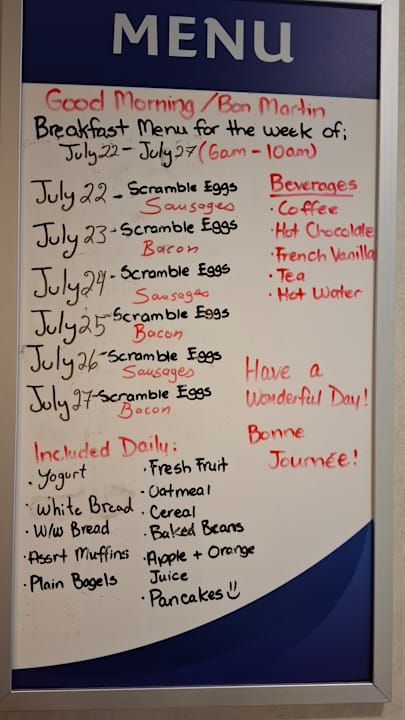 MENU
Good Morning/Bon Martin
Breakfast Menu for the week of;
July 22 - July 27 (6am - 10am)
July 22 - Scramble Eggs
Sausages
July 23 - Scramble Eggs
Bacon
July 24 - Scramble Eggs
Sausages
July 25 - Scramble Eggs
Bacon
July 26 - Scramble Eggs
Sausages
July 27 - Scramble Eggs
Bacon
Beverages
· Coffee
· Hot Chocolate
· French Vanilla
· Tea
· Hot Water
Have a
Wonderful Day!
Bonne
Journée!
Included Daily:
· Yogurt
· White Bread
· W/w Bread
· Assrt Muffins
· Plain Bagels
· Fresh Fruit
· Oatmeal
· Cereal
· Baked Beans
· Apple + Orange
Juice
· Pancakes